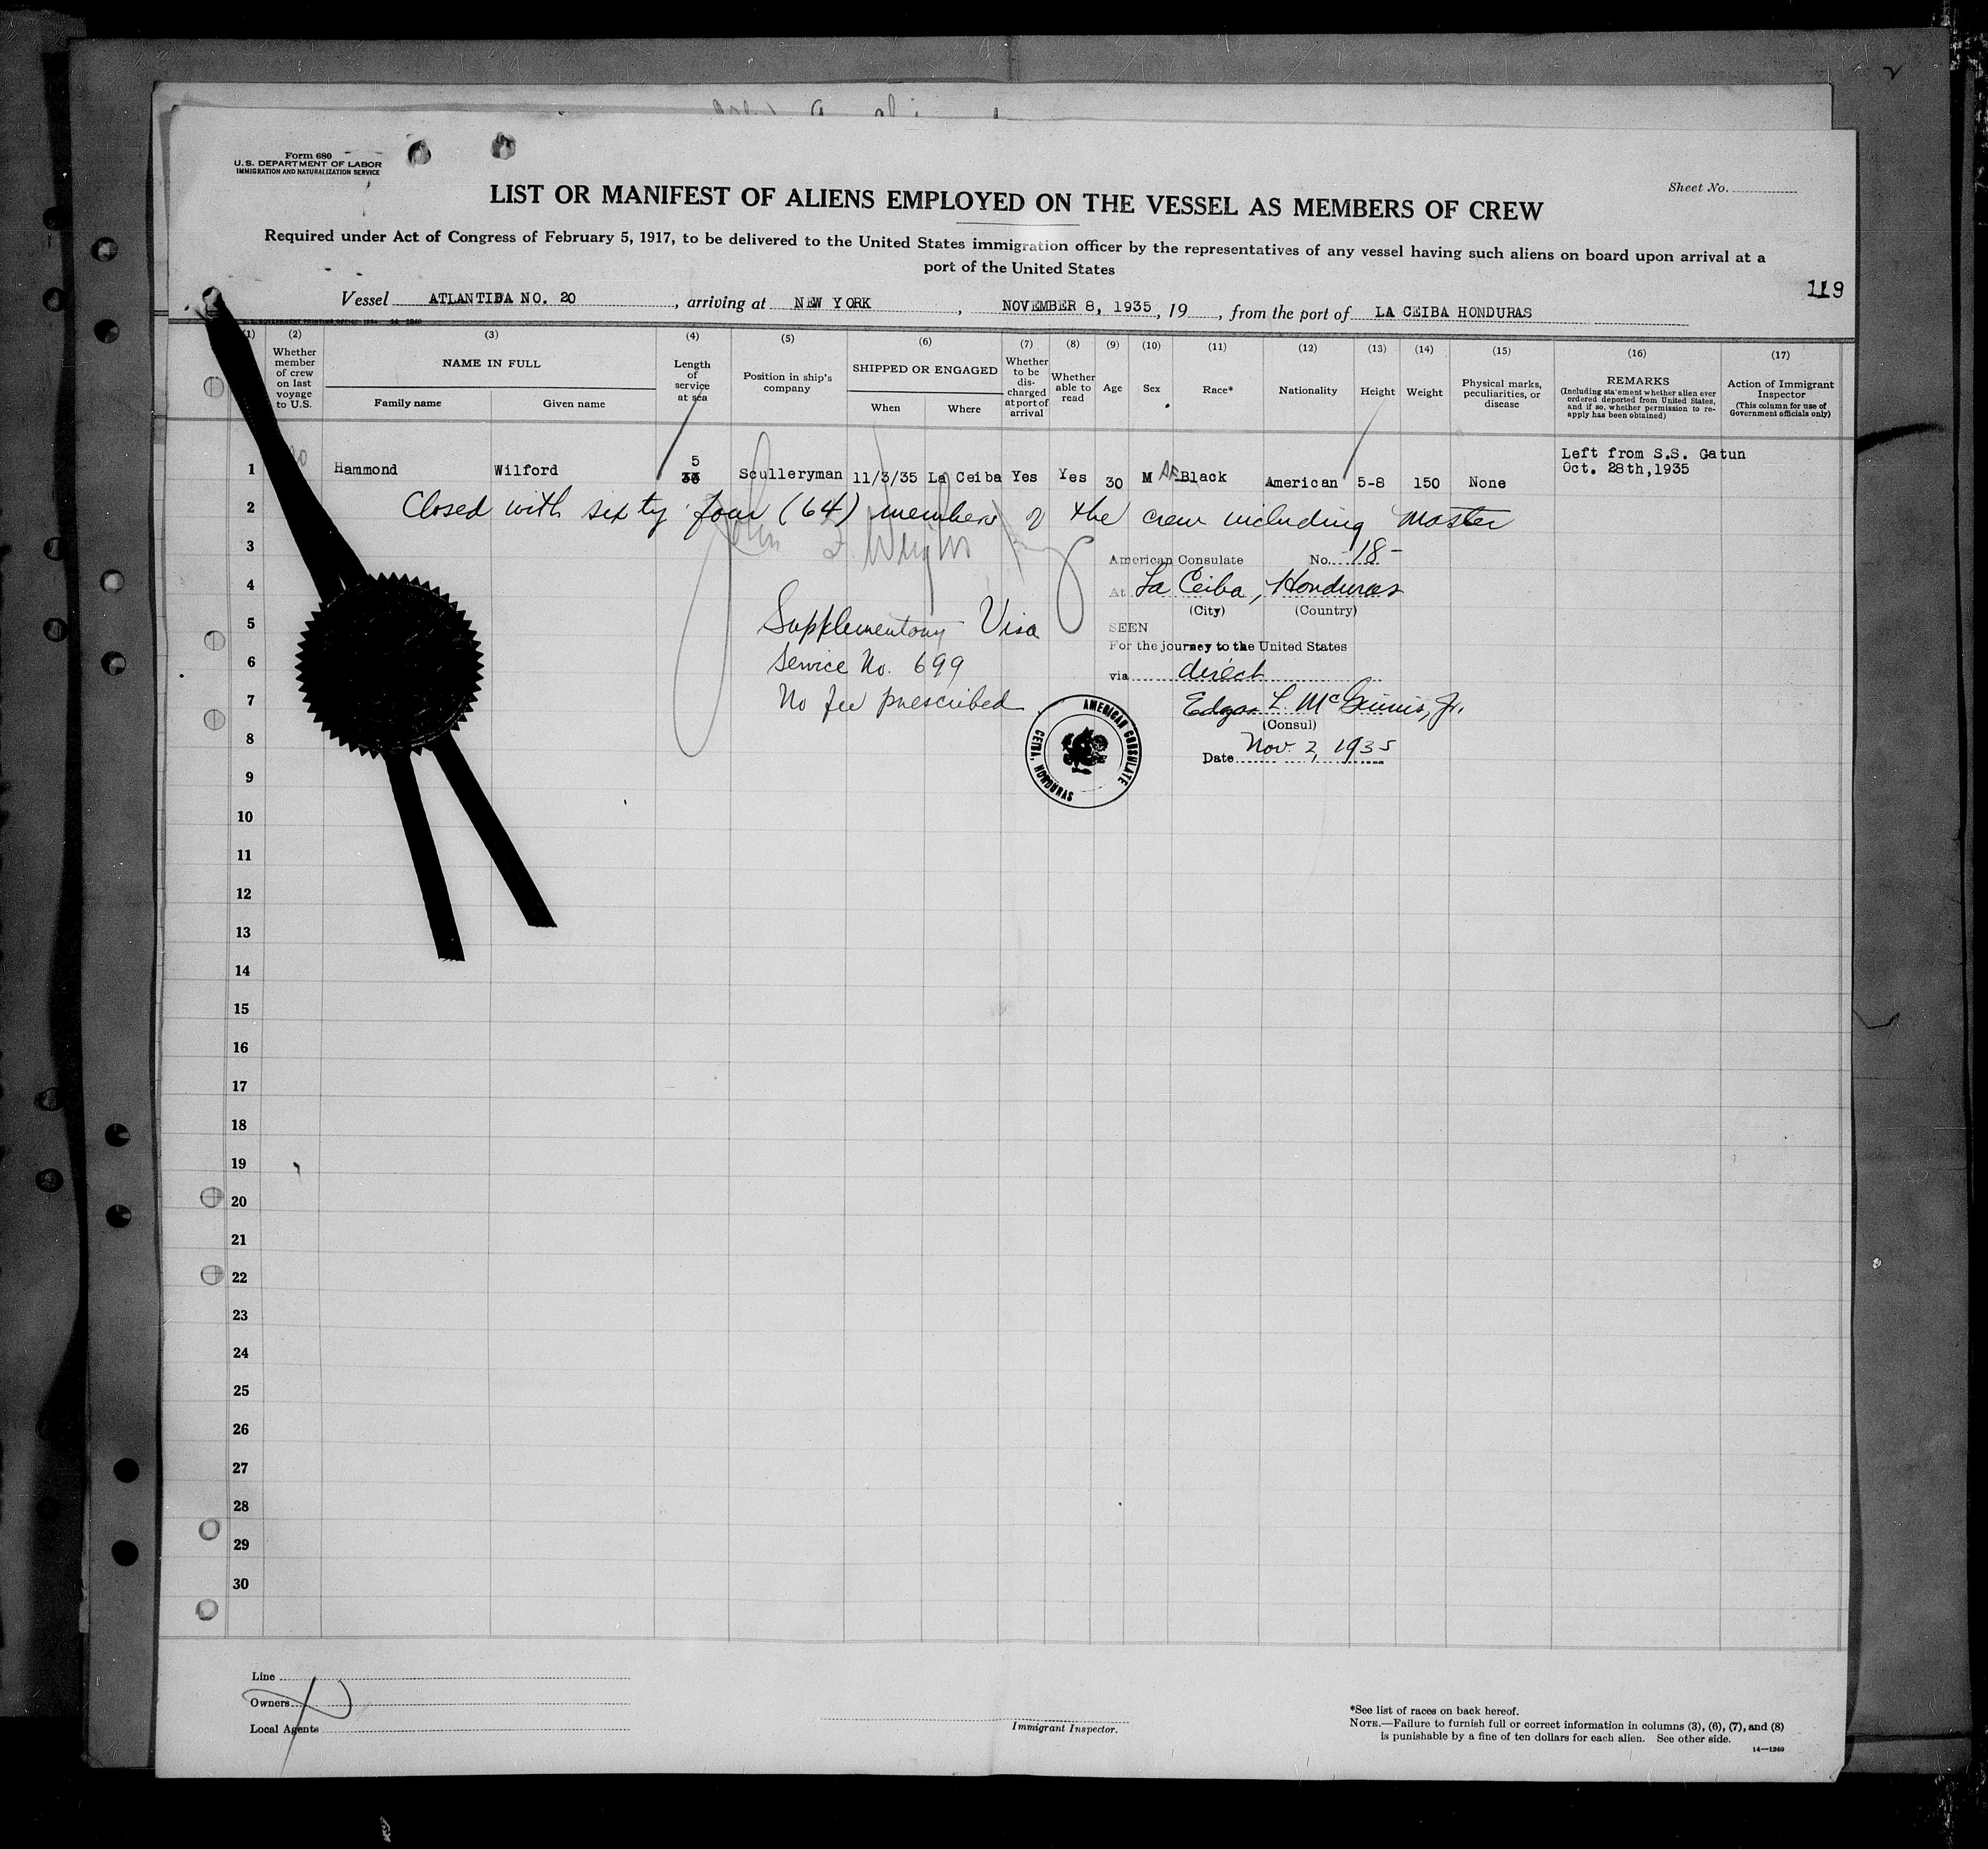 Form 680
U.S. DEPARTMENT OF LABOR
IMMIGRATION AND NATURALIZATION SERVICE
Sheet No.
LIST OR MANIFEST OF ALIENS EMPLOYED ON THE VESSEL AS MEMBERS OF CREW
Required under Act of Congress of February 5, 1917, to be delivered to the United States immigration officer by the representatives of any vessel having such aliens on board upon arrival at a
port of the United States
119
Vessel ATLANTIDA NO. 20, arriving at NEW YORK, NOVEMBER 8, 1935, 19, from the port of LA CEIBA HONDURAS
(1) (2) (3) (4) (5) (6) (7) (8) (9) (10) (11) (12) (13) (14) (15) (16) (17)
Whether member of crew on last voyage to U.S.
NAME IN FULL
Family name Given name
Length of service at sea
Position in ship's company
SHIPPED OR ENGAGED
When Where
Whether to be discharged at port of arrival
Whether able to read
Age
Sex
Race*
Nationality
Height
Weight
Physical marks, peculiarities, or disease
REMARKS
(Including statement whether alien ever ordered deported from United States, and if so, whether permission to reapply has been obtained)
Action of Immigrant Inspector
(This column for use of Government officials only)
1 Hammond Wilford 5 Sculleryman 11/3/35 La Ceiba Yes Yes 30 M Black American 5-8 150 None Left from S.S. Gatun
Oct. 28th, 1935
2 Closed with sixty four (64) members of the crew including Master
3
American Consulate No. -18-
4 At La Ceiba, Honduras
(City) (Country)
5 Supplementary Visa
SEEN
For the journey to the United States
6 Service No. 699
via direct
7 No fee prescribed
Edgar L. McGinnis, Jr.
(Consul)
8
Date Nov. 2, 1935
AMERICAN CONSULATE
CEIBA, HONDURAS
9
10
11
12
13
14
15
16
17
18
19
20
21
22
23
24
25
26
27
28
29
30
Line
Owners
Local Agents
Immigrant Inspector.
*See list of races on back hereof.
NOTE.—Failure to furnish full or correct information in columns (3), (6), (7), and (8)
is punishable by a fine of ten dollars for each alien. See other side.
14—1240